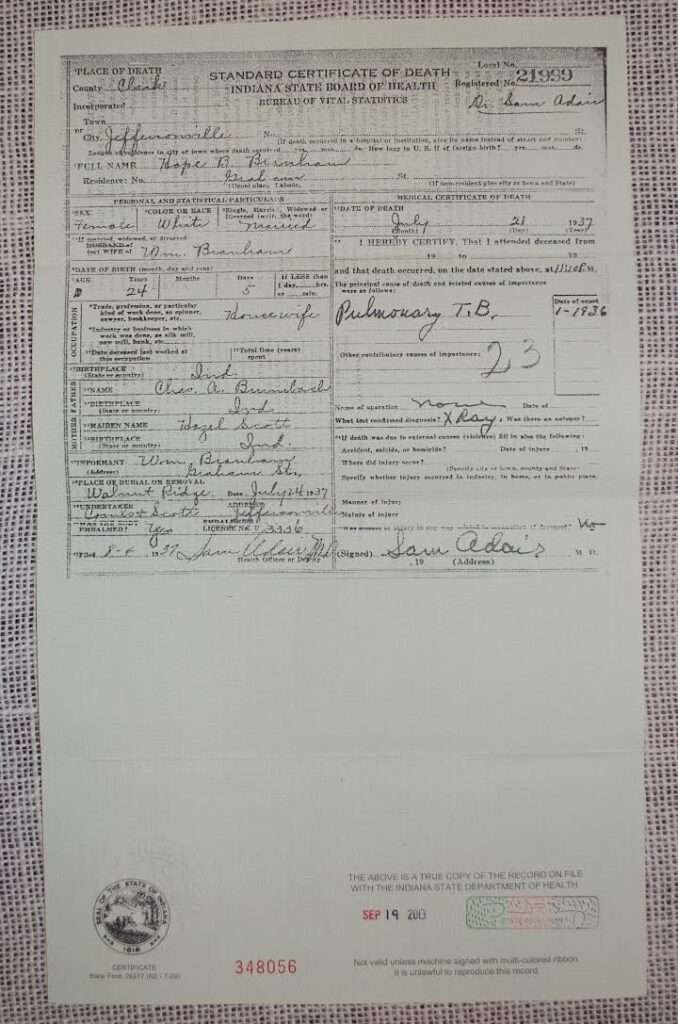 PLACE OF DEATH
County Clark
STANDARD CERTIFICATE OF DEATH
INDIANA STATE BOARD OF HEALTH
BUREAU OF VITAL STATISTICS
Local No.
Registered No. 21999
Dr. Sam Adair
Incorporated
Town
or
City Jeffersonville No. St.
(If death occurred in a hospital or institution, give its name instead of street and number)
Length of residence in city or town where death occurred yrs. mos. ds. How long in U. S. if of foreign birth? yrs. mos. ds.
FULL NAME Hope B. Branham
Residence: No. Graham St.
(Usual place of abode) (If non-resident give city or town and State)
PERSONAL AND STATISTICAL PARTICULARS
SEX
Female
COLOR OR RACE
White
Single, Married, Widowed or
Divorced (write the word)
Married
If married, widowed, or divorced
HUSBAND of
(or) WIFE of Wm. Branham
DATE OF BIRTH (month, day and year)
AGE Years Months Days If LESS than
1 day, hrs.
or min.
24 5
OCCUPATION
Trade, profession, or particular
kind of work done, as spinner,
sawyer, bookkeeper, etc.
Housewife
Industry or business in which
work was done, as silk mill,
saw mill, bank, etc.
Date deceased last worked at
this occupation
Total time (years)
spent
BIRTHPLACE
(State or country) Ind
FATHER
NAME Chas. A. Brumbach
BIRTHPLACE
(State or country) Ind.
MOTHER
MAIDEN NAME Hazel Scott
BIRTHPLACE
(State or country) Ind.
INFORMANT Wm. Branham
(Address) Graham St.
PLACE OF BURIAL OR REMOVAL
Walnut Ridge Date July 24 1937
UNDERTAKER ADDRESS
Coots & Scott Jeffersonville
EMBALMED? Yes
EMBALMER'S
LICENSE No.
Filed 8-4 1937 Sam Adair MD
Health Officer or Deputy
MEDICAL CERTIFICATE OF DEATH
DATE OF DEATH
July 21 1937
(Month) (Day) (Year)
I HEREBY CERTIFY, That I attended deceased from
19 to 19
and that death occurred, on the date stated above, at M.
The principal cause of death and related causes of importance
were as follows:
Pulmonary T.B.
Date of onset
1-1936
Other contributory causes of importance:
23
Name of operation none Date of
What test confirmed diagnosis? X Ray Was there an autopsy?
If death was due to external causes (violence) fill in also the following:
Accident, suicide, or homicide? Date of injury , 19
Where did injury occur?
(Specify city or town, county and State)
Specify whether injury occurred in industry, in home, or in public place.
Manner of injury
Nature of injury
Was disease or injury in any way related to occupation of deceased? No
(Signed) Sam Adair M. D.
, 19 (Address)
THE ABOVE IS A TRUE COPY OF THE RECORD ON FILE
WITH THE INDIANA STATE DEPARTMENT OF HEALTH
SEP 19 2013
SEAL OF THE STATE OF INDIANA
1816
CERTIFICATE
348056
Not valid unless machine signed with multi-colored ribbon.
It is unlawful to reproduce this record.